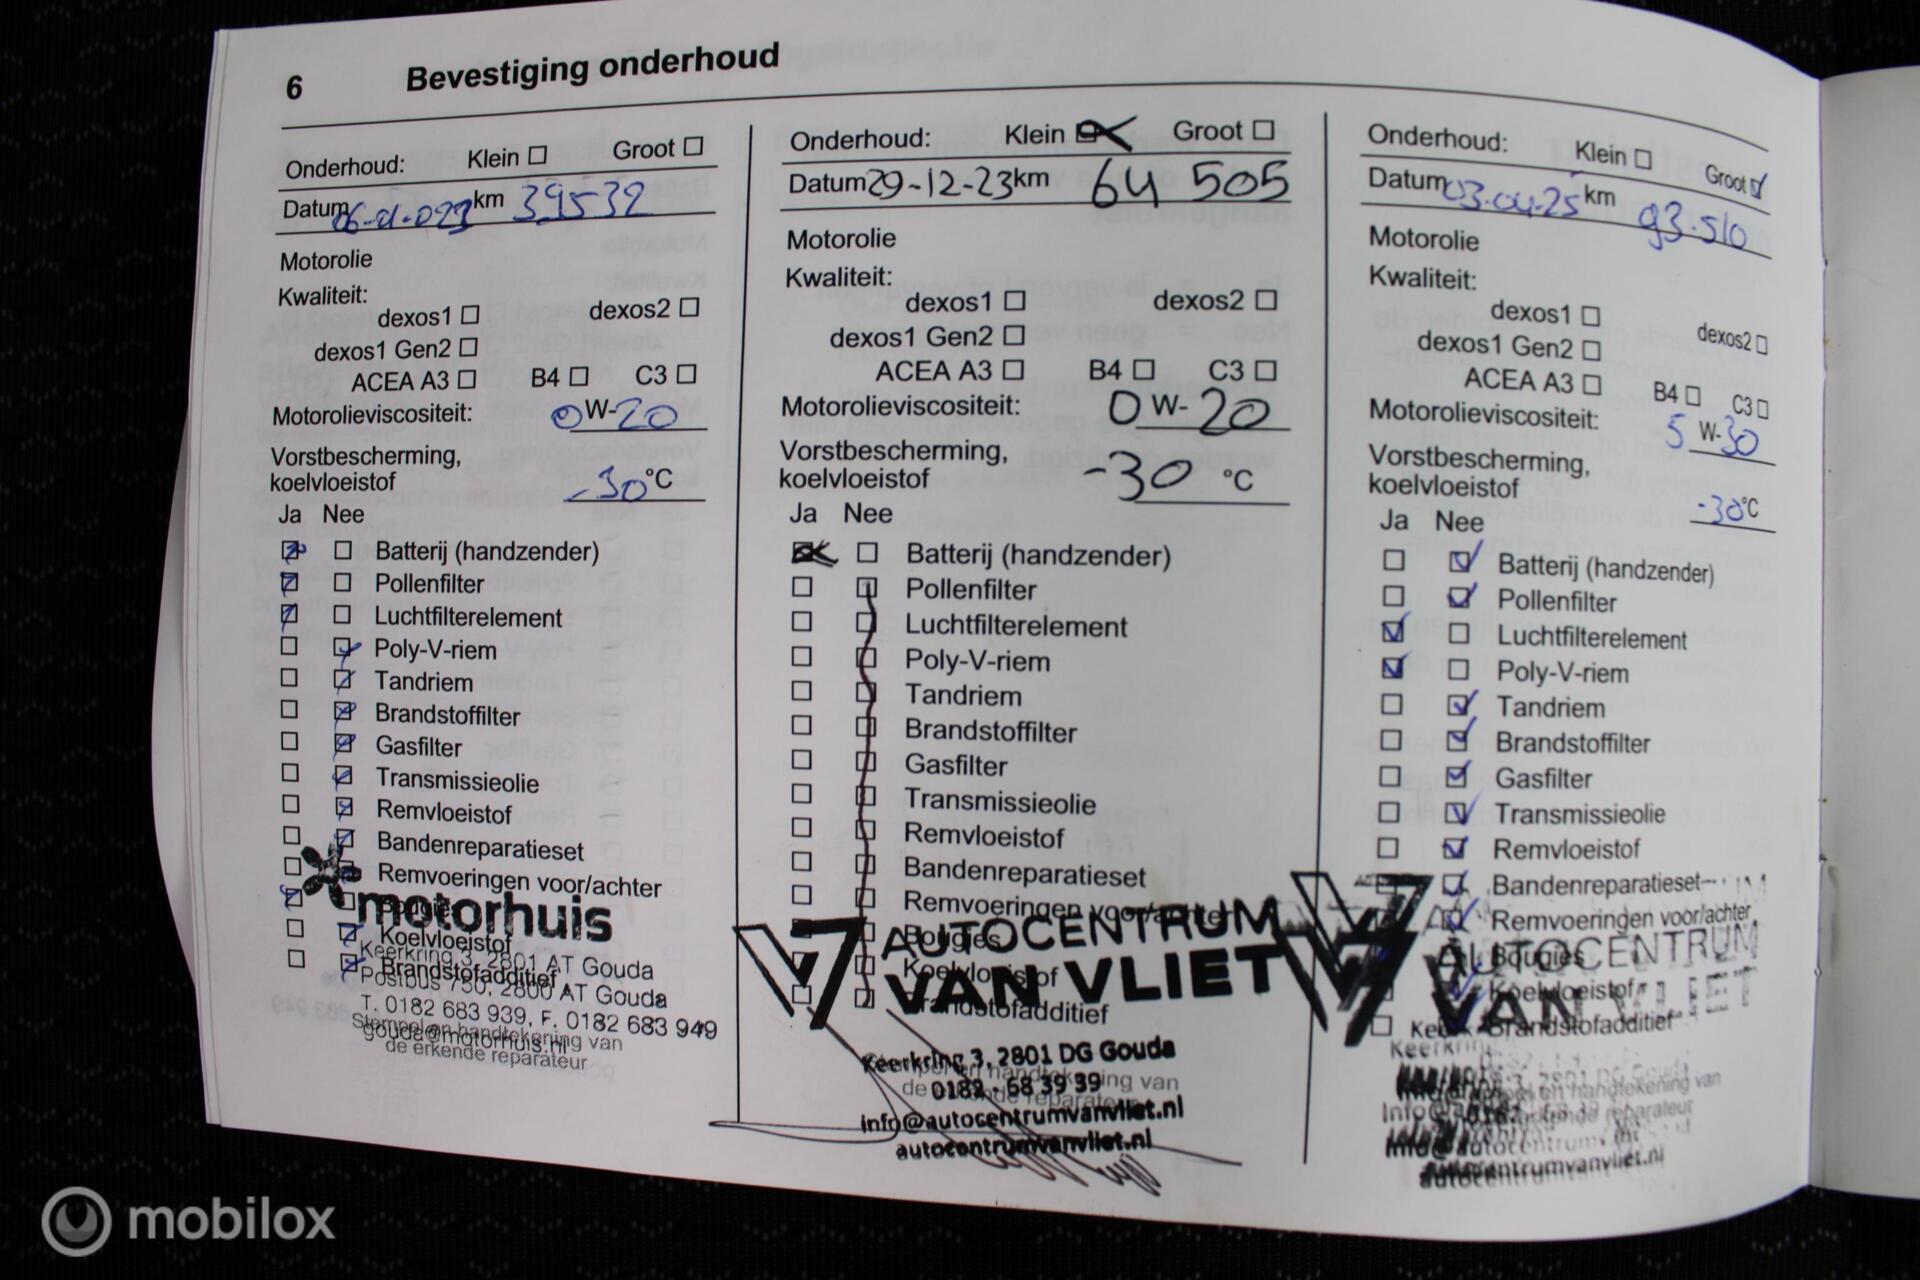 6 Bevestiging onderhoud
Onderhoud: Klein Groot
Datum km 39532
Motorolie
Kwaliteit:
dexos1 dexos2
dexos1 Gen2
ACEA A3 B4 C3
Motorolieviscositeit: 0 W-20
Vorstbescherming,
koelvloeistof -30 °C
Ja Nee
Batterij (handzender)
Pollenfilter
Luchtfilterelement
Poly-V-riem
Tandriem
Brandstoffilter
Gasfilter
Transmissieolie
Remvloeistof
Bandenreparatieset
Remvoeringen voor/achter
Bougies
motorhuis
Koelvloeistof
Keerkring 3, 2801 AT Gouda
Brandstofadditief
Postbus 750, 2800 AT Gouda
T. 0182 683 939, F. 0182 683 949
Stempel en handtekening van
gouda@motorhuis.nl
de erkende reparateur
Onderhoud: Klein Groot
Datum 29-12-23 km 64 505
Motorolie
Kwaliteit:
dexos1 dexos2
dexos1 Gen2
ACEA A3 B4 C3
Motorolieviscositeit: 0 W-20
Vorstbescherming,
koelvloeistof -30 °C
Ja Nee
Batterij (handzender)
Pollenfilter
Luchtfilterelement
Poly-V-riem
Tandriem
Brandstoffilter
Gasfilter
Transmissieolie
Remvloeistof
Bandenreparatieset
Remvoeringen voor/achter
AUTOCENTRUM
Bougies
Koelvloeistof
VAN VLIET
Brandstofadditief
Keerkring 3, 2801 DG Gouda
Stempel en handtekening van
0182 - 68 39 39
de erkende reparateur
info@autocentrumvanvliet.nl
autocentrumvanvliet.nl
Onderhoud: Klein Groot
Datum 03.04.25 km 93.510
Motorolie
Kwaliteit:
dexos1 dexos2
dexos1 Gen2
ACEA A3 B4 C3
Motorolieviscositeit: 5 W-30
Vorstbescherming,
koelvloeistof -30 °C
Ja Nee
Batterij (handzender)
Pollenfilter
Luchtfilterelement
Poly-V-riem
Tandriem
Brandstoffilter
Gasfilter
Transmissieolie
Remvloeistof
Bandenreparatieset
Remvoeringen voor/achter
AUTOCENTRUM
Bougies
Koelvloeistof
VAN VLIET
Brandstofadditief
Stempel en handtekening van
de erkende reparateur
autocentrumvanvliet.nl
mobilox